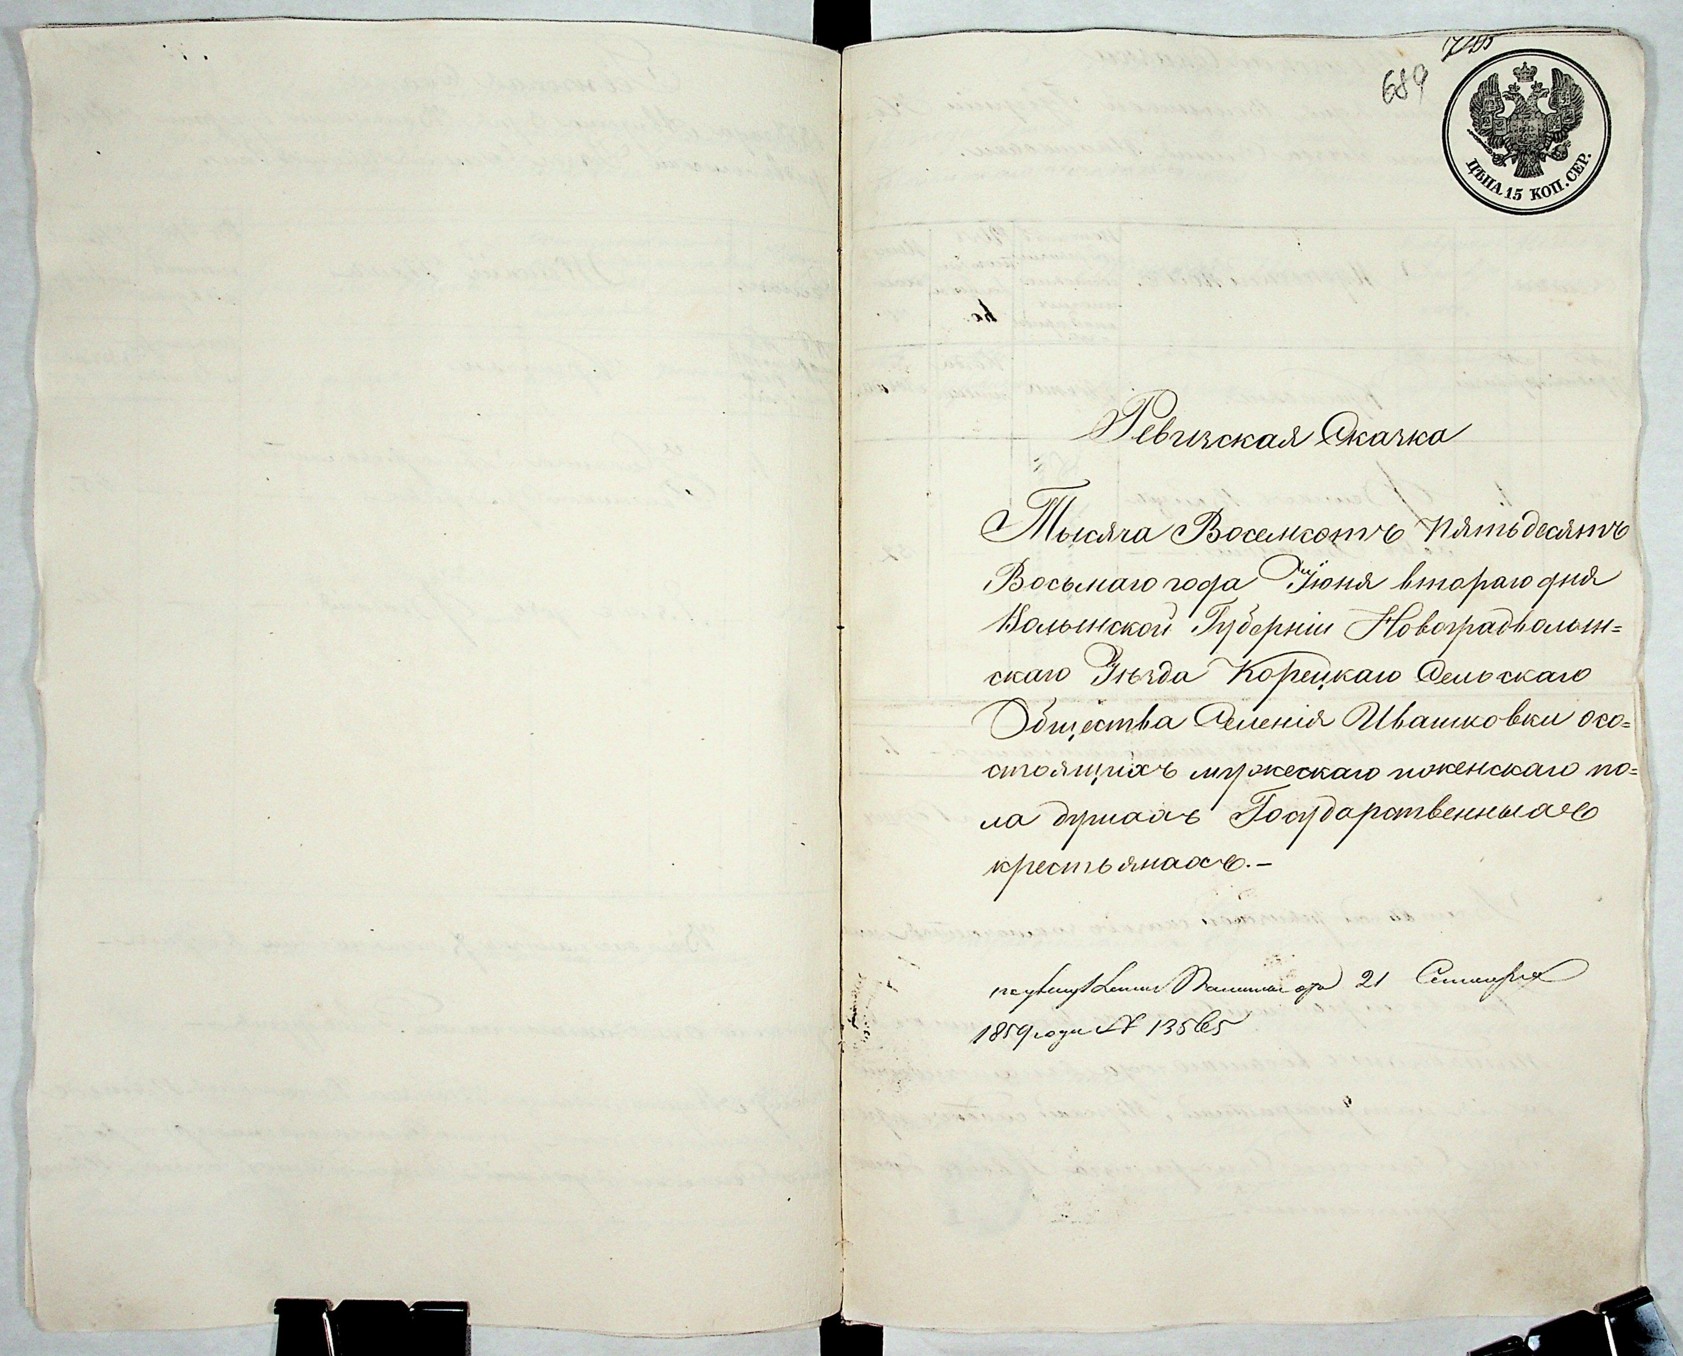 689
ЦѢНА 15 КОП. СЕР.
Ревизская Сказка
Тысяча Восемсотъ Пятьдесятъ
Восьмаго года Іюня втораго дня
Волынской Губерніи Новоградволын=
скаго Уѣзда Корецкаго Сельскаго
Общества Селенія Ивашковки осо=
стоящихъ мужескаго иженскаго по=
ла душахъ Государственныхъ
крестьянахъ.-
21 Сентября
1859 года № 13565